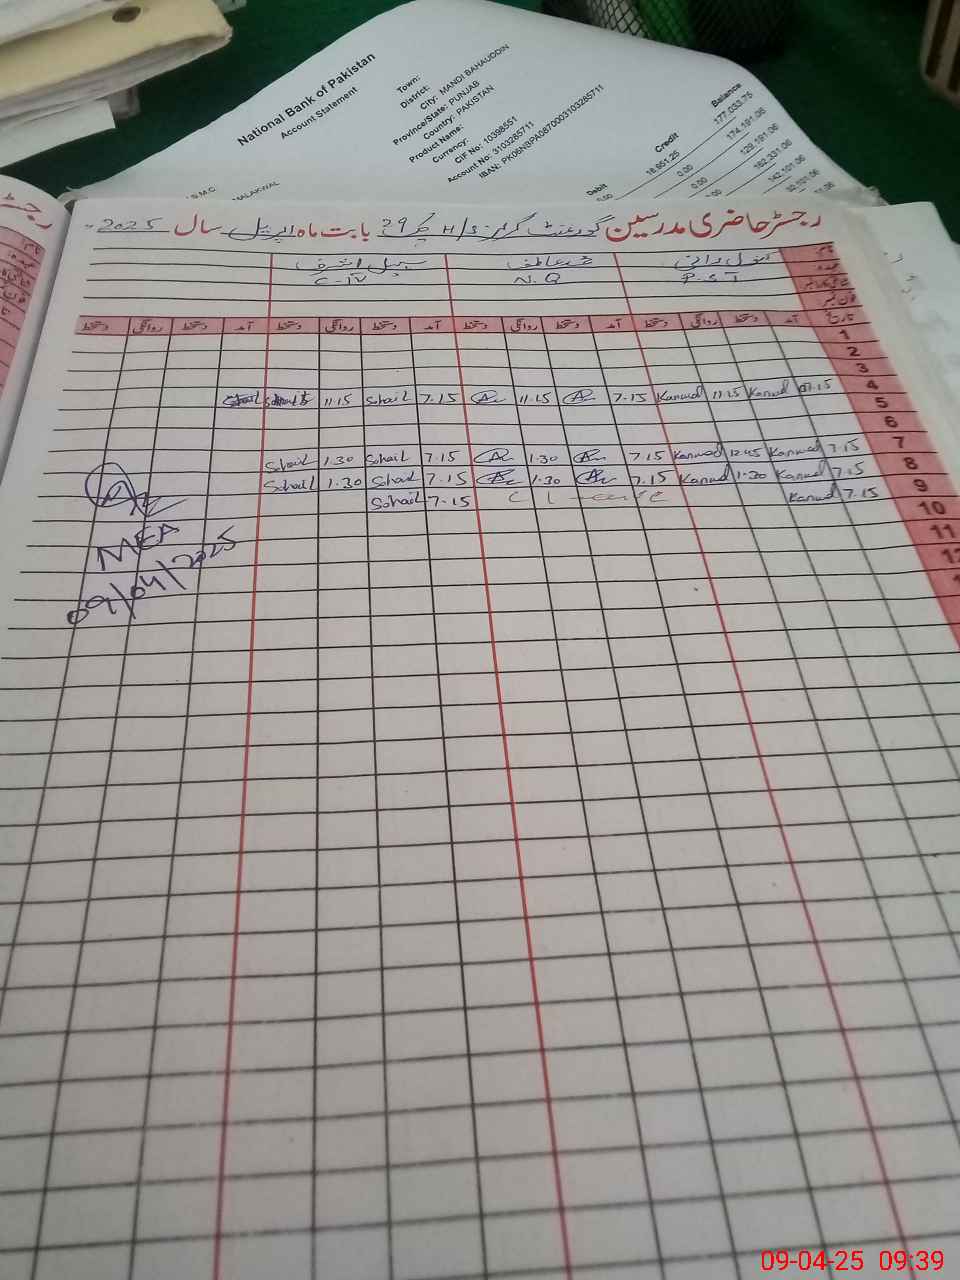 National Bank of Pakistan
Account Statement
Town:
District:
City: MANDI BAHAUDDIN
Province/State: PUNJAB
Country: PAKISTAN
Product Name:
Currency:
CIF No: 10398551
Account No: 3103285711
IBAN: PK06NBPA0870003103285711
Debit Credit Balance
0.00 16,951.25 177,033.75
0.00 174,191.06
0.00 129,191.06
162,331.06
142,101.06
S.M.C
MALAKWAL
رجسٹر حاضری مدرسین گورنمنٹ گرلز H/S چک 29 بابت ماہ اپریل سال 2025
محمد عاطف سہیل اشرف
P.S.T N.Q C-IV
تاریخ آمد دستخط روانگی دستخط آمد دستخط روانگی دستخط آمد دستخط روانگی دستخط آمد دستخط روانگی دستخط
1
2
3
4
5 7.15 Kanwal 11.15 Kanwal 7.15 11.15 7.15 Sohail 11.15
6
7
8 7.15 Kanwal 12.45 Kanwal 7.15 1.30 7.15 Sohail 1.30 Sohail
9 7.15 Kanwal 1.30 Kanwal 7.15 1.30 7.15 Sohail 1.30 Sohail
10 7.15 Kanwal 7.15 Sohail
11
12
MEA
09/04/2025
09-04-25 09:39